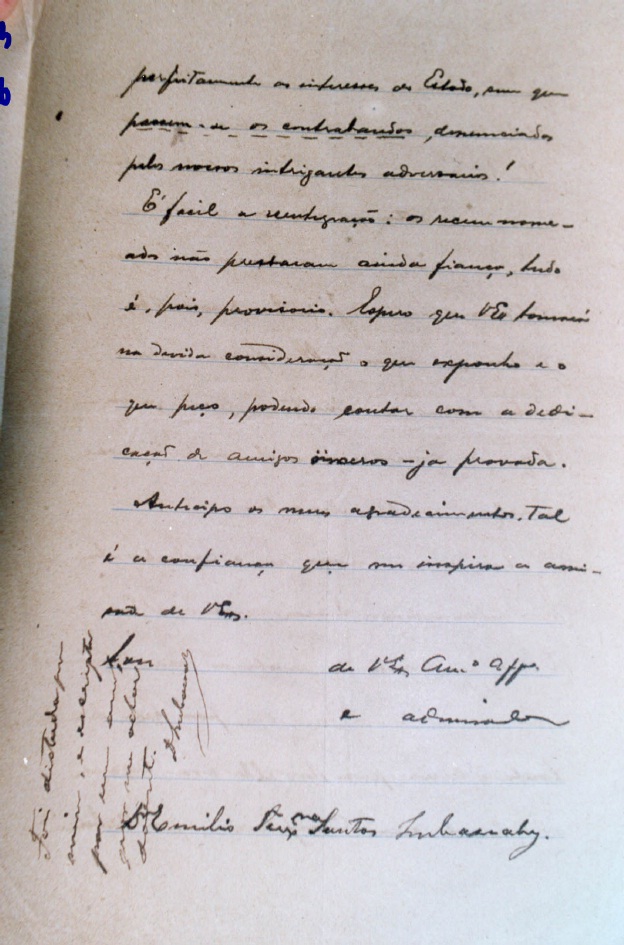 perfeitamente os interesses do Estado, sem que
passem-se os contrabandos, denunciados
pelos nossos intrigantes adversarios!
É facil a reintegração: os recem nome-
ados não prestaram ainda fiança, tudo
é, pois, provisorio. Espero que VEx tomará
na devida consideração o que exponho e o
que peço, podendo contar com a dedi-
cação de amigos sinceros - ja provada.
Antecipo os meus agradecimentos. Tal
é a confiança que me inspira a ami-
sade de VExa.
Sou de VExa Am.º
e admirador
Dr Emilio dos Santos
Foi dictada por
mim, e escripta
por um
por me achar
doente.